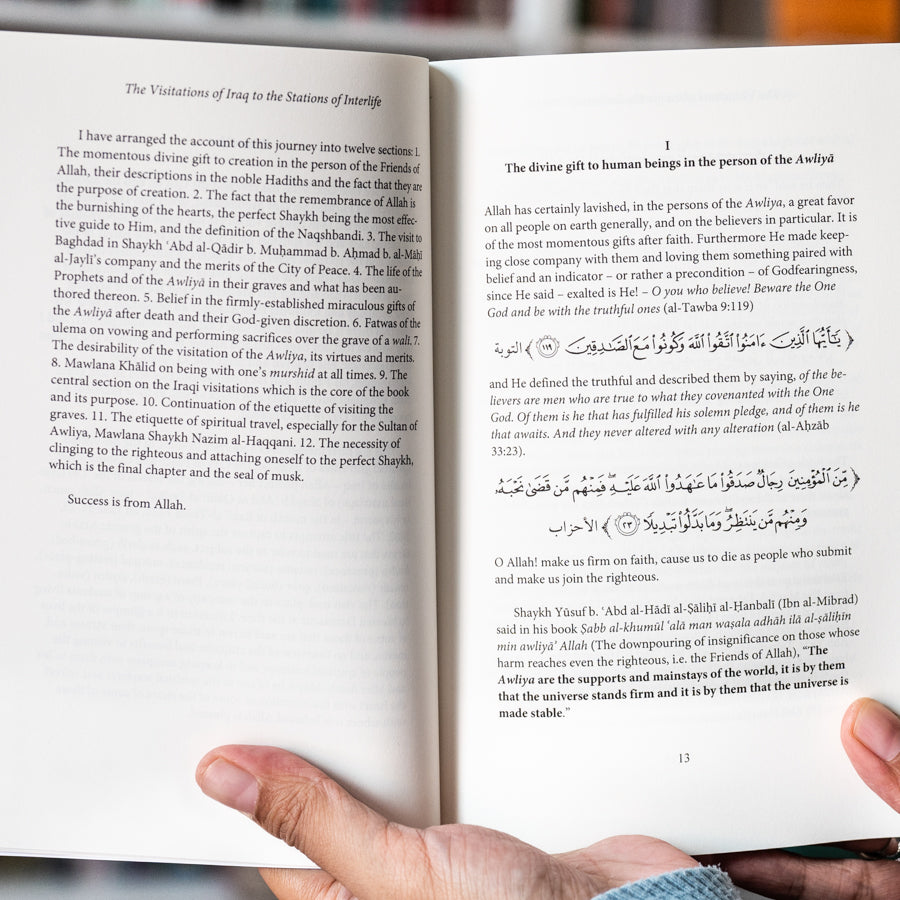 The Visitations of Iraq to the Stations of Interlife
I have arranged the account of this journey into twelve sections: 1.
The momentous divine gift to creation in the person of the Friends of
Allah, their descriptions in the noble Hadiths and the fact that they are
the purpose of creation. 2. The fact that the remembrance of Allah is
the burnishing of the hearts, the perfect Shaykh being the most effec-
tive guide to Him, and the definition of the Naqshbandi. 3. The visit to
Baghdad in Shaykh ʿAbd al-Qādir b. Muḥammad b. Aḥmad b. al-Māḥī
al-Jaylī’s company and the merits of the City of Peace. 4. The life of the
Prophets and of the Awliyā in their graves and what has been au-
thored thereon. 5. Belief in the firmly-established miraculous gifts of
the Awliyā after death and their God-given discretion. 6. Fatwas of the
ulema on vowing and performing sacrifices over the grave of a wali. 7.
The desirability of the visitation of the Awliya, its virtues and merits.
8. Mawlana Khālid on being with one’s murshid at all times. 9. The
central section on the Iraqi visitations which is the core of the book
and its purpose. 10. Continuation of the etiquette of visiting the
graves. 11. The etiquette of spiritual travel, especially for the Sultan of
Awliya, Mawlana Shaykh Nazim al-Haqqani. 12. The necessity of
clinging to the righteous and attaching oneself to the perfect Shaykh,
which is the final chapter and the seal of musk.
Success is from Allah.
I
The divine gift to human beings in the person of the Awliyā
Allah has certainly lavished, in the persons of the Awliya, a great favor
on all people on earth generally, and on the believers in particular. It is
of the most momentous gifts after faith. Furthermore He made keep-
ing close company with them and loving them something paired with
belief and an indicator – or rather a precondition – of Godfearingness,
since He said – exalted is He! – O you who believe! Beware the One
God and be with the truthful ones (al-Tawba 9:119)
﴿ يَـٰٓأَيُّهَا ٱلَّذِينَ ءَامَنُوا۟ ٱتَّقُوا۟ ٱللَّهَ وَكُونُوا۟ مَعَ ٱلصَّـٰدِقِينَ ١١٩ ﴾ التوبة
and He defined the truthful and described them by saying, of the be-
lievers are men who are true to what they covenanted with the One
God. Of them is he that has fulfilled his solemn pledge, and of them is he
that awaits. And they never altered with any alteration (al-Aḥzāb
33:23).
﴿ مِّنَ ٱلْمُؤْمِنِينَ رِجَالٌ صَدَقُوا۟ مَا عَـٰهَدُوا۟ ٱللَّهَ عَلَيْهِ ۖ فَمِنْهُم مَّن قَضَىٰ نَحْبَهُۥ
وَمِنْهُم مَّن يَنتَظِرُ ۖ وَمَا بَدَّلُوا۟ تَبْدِيلًا ٢٣ ﴾ الأحزاب
O Allah! make us firm on faith, cause us to die as people who submit
and make us join the righteous.
Shaykh Yūsuf b. ʿAbd al-Hādī al-Ṣāliḥī al-Ḥanbalī (Ibn al-Mibrad)
said in his book Ṣabb al-khumūl ʿalā man waṣala adhāh ilā al-ṣāliḥīn
min awliyāʾ Allah (The downpouring of insignificance on those whose
harm reaches even the righteous, i.e. the Friends of Allah), “The
Awliya are the supports and mainstays of the world, it is by them
that the universe stands firm and it is by them that the universe is
made stable.”
13